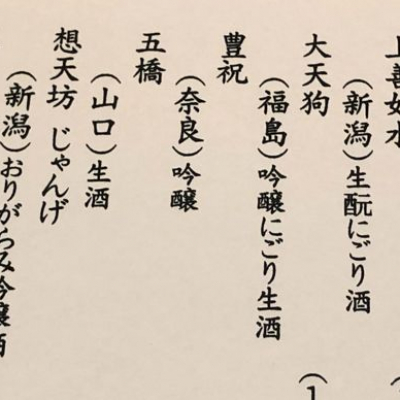 上善如水
（新潟）生酛にごり酒
大天狗
（福島）吟醸にごり生酒
（1
豊祝
（奈良）吟醸
五橋
（山口）生酒
想天坊 じゃんげ
（新潟）おりがらみ吟醸酒